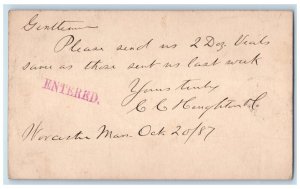 Gentlemen
Please send us 2 Doz Veals
same as those sent us last week
Yours truly
ENTERED.
C C Houghton & Co
Worcester Mass Oct 20/87